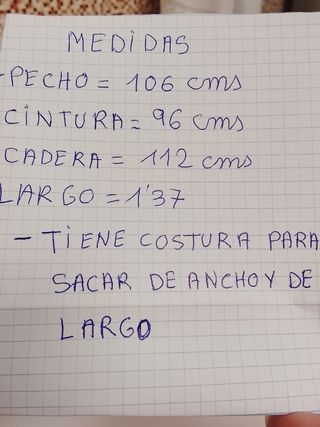 MEDIDAS
-PECHO = 106 cms
CINTURA = 96 cms
CADERA = 112 cms
LARGO = 1'37
- TIENE COSTURA PARA
SACAR DE ANCHO Y DE
LARGO